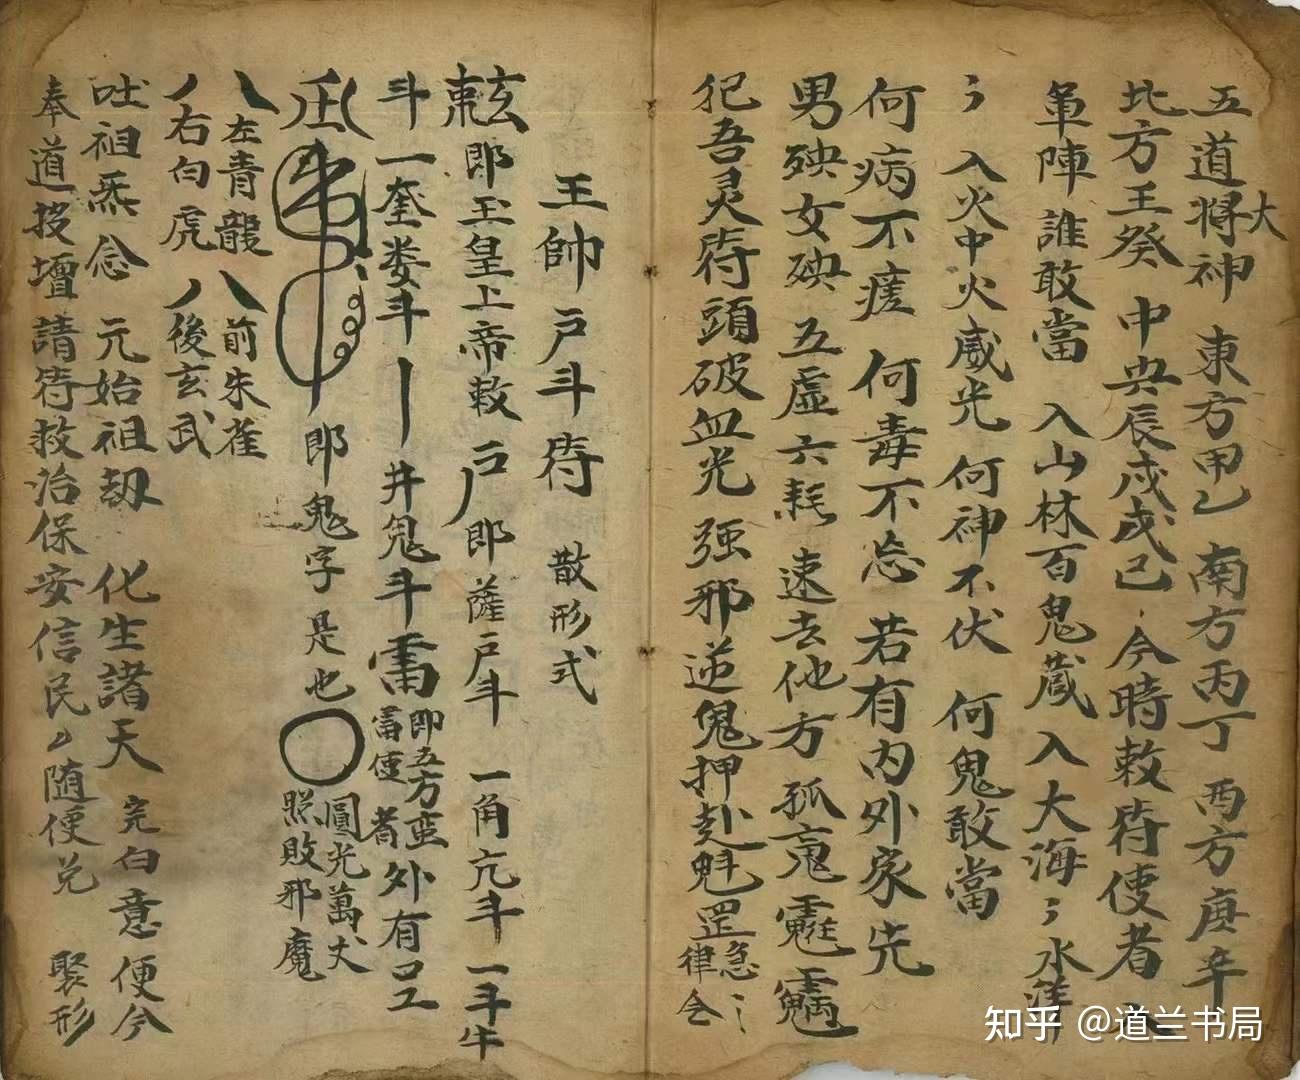 五道大將神 東方甲乙 南方丙丁 西方庚辛
北方壬癸 中央辰戌戊己 今時敕符使者 入
軍陣誰敢當 入山林百鬼藏 入大海〻水洋
〻 入火中火威光 何神不伏 何鬼敢當
何病不瘥 何毒不忘 若有內外家先
男殃女殃 五虛六耗 速去他方 孤魂
犯吾灵符頭破血光 强邪逆鬼押赴魁罡 急〻
律令
王帥尸斗符 散形式
玄敕 即玉皇上帝敕 尸 即薩尸斗 一角亢斗 一斗牛
斗 一奎娄斗 丨 井鬼斗 雷 即五方蛮
雷使者 外有
即鬼字是也 〇 圓光萬丈
照敗邪魔
左青龍 八 前朱雀
右白虎 八 後玄武
吐祖炁 念 元始祖劫 化生諸天 完白意 便今
奉道投壇請符救治保安信民厶随便兑 聚形
知乎 @道兰书局